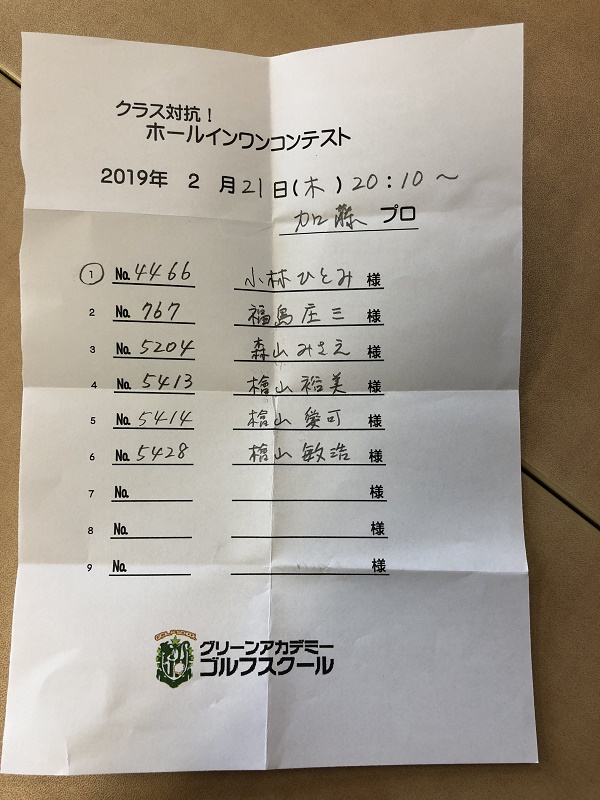 クラス対抗！
ホールインワンコンテスト
2019年 2 月21日(木)20:10～
加藤 プロ
① No.4466 小林ひとみ 様
2 No.767 福島庄三 様
3 No.5204 森山みさえ 様
4 No.5413 檜山裕美 様
5 No.5414 檜山愛可 様
6 No.5428 檜山敏浩 様
7 No. 様
8 No. 様
9 No. 様
グリーンアカデミー
ゴルフスクール